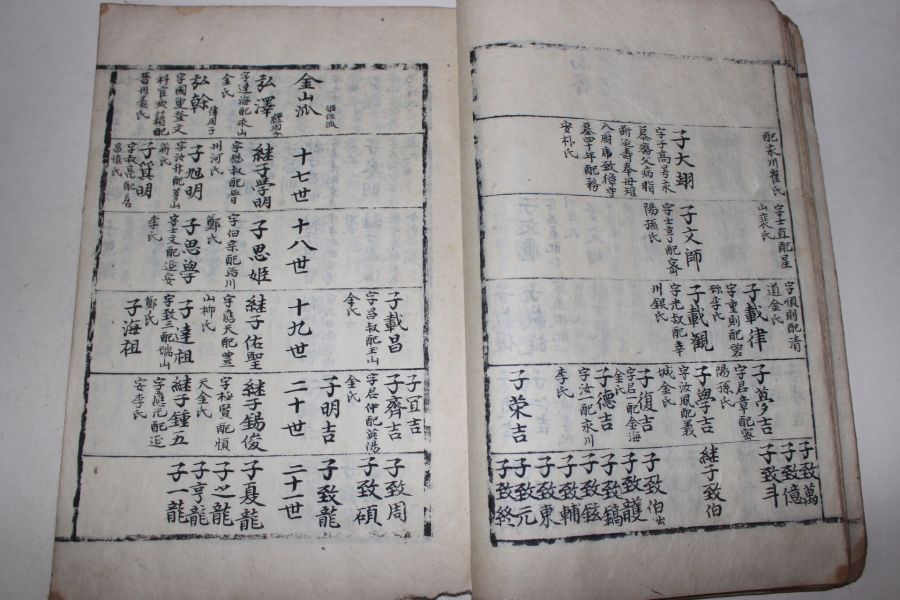 配永川崔氏
子大翊
字子高号永
慕齋父病脂
斷延壽奉母雉
入廚席致獐守
墓四十年配務
安朴氏
字士直配星
山裵氏
子文師
字士亨配密
陽孫氏
字順則配清
道金氏
子載律
字重則配碧
珍李氏
子載觀
字光叔配幸
川銀氏
子夢吉
字君章配密
陽孫氏
子學吉
字汝鳳配義
城金氏
子復吉
字君一配金海
金氏
子德吉
字汝一配永川
李氏
子榮吉
子致萬
子致億
子致斗
継子致伯
子致伯出
子致頀
子致鎬
子致鉉
子致輔
子致東
子致元
子致終
子載昌
字昌叔配玉山
金氏
子宜吉
子齊吉
字君仲配英陽
金氏
子明吉
子致周
子致碩
子致龍
金山派
十七世
十八世
十九世
二十世
二十一世
弘澤
字達海配永山
金氏
弘幹
字國重登文
科官典籍配
晋州姜氏
継子學明
字懋叔配晋
州河氏
子旭明
子箕明
昌愼氏
子思姬
鄭氏
子思學
字士文配延安
李氏
継子佑聖
字應天配豊
山柳氏
子達祖
字致三配瑞山
鄭氏
子海祖
継子錫俊
字極賢配順
天金氏
継子鍾五
字應元配延
安李氏
子夏龍
子之龍
子亨龍
子一龍